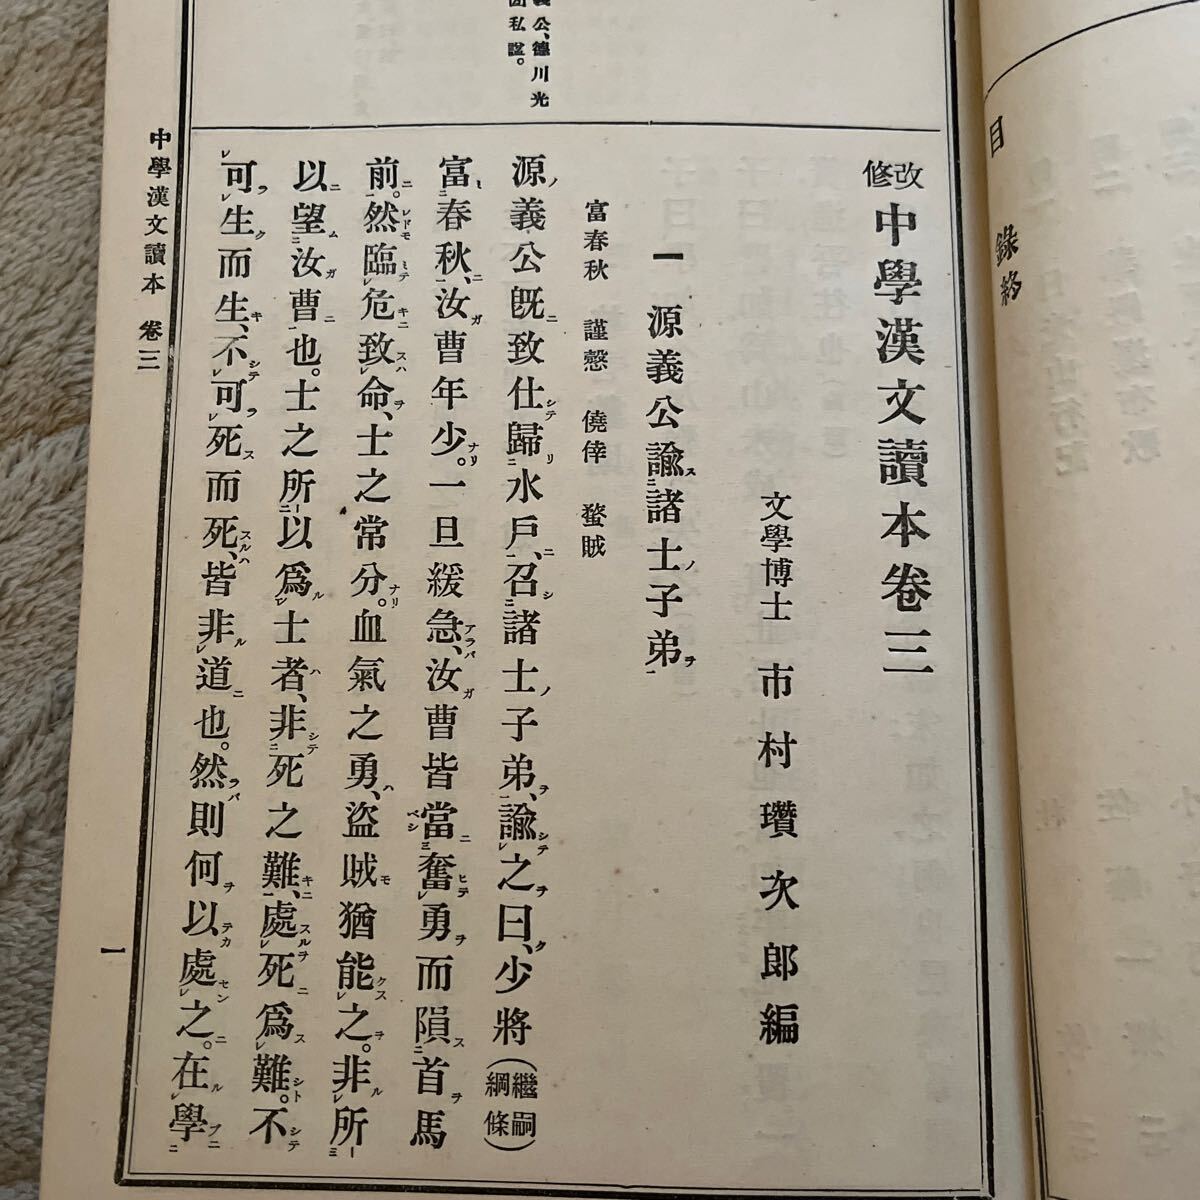 目錄終
義公、德川光
圀私諡。
改修中學漢文讀本卷三
文學博士 市村瓚次郎編
一 源義公諭諸士子弟
富春秋 謹愨 僥倖 蝥賊
源義公既致仕歸水戶、召諸士子弟、諭之曰、少將(繼嗣綱條)
富春秋、汝曹年少。一旦緩急、汝曹皆當奮勇而隕首馬
前。然臨危致命、士之常分。血氣之勇、盜賊猶能之。非所
以望汝曹也。士之所以爲士者、非死之難、處死爲難。不
可生而生、不可死而死、皆非道也。然則何以處之。在學
中學漢文讀本 卷三
一